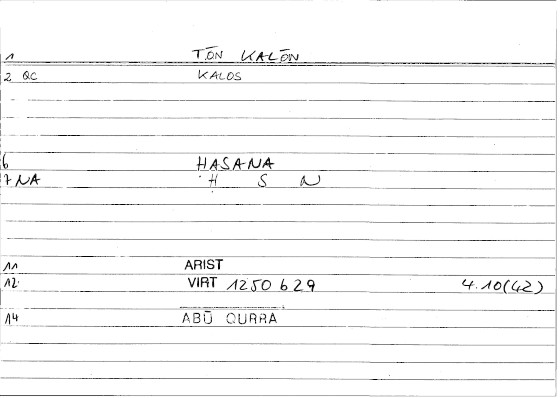 1 TŌN KALŌN
2 QC KALOS
6 HASANA
7 NA H S N
11 ARIST
12 VIRT 1250 b 29 4.10(42)
14 ABŪ QURRA